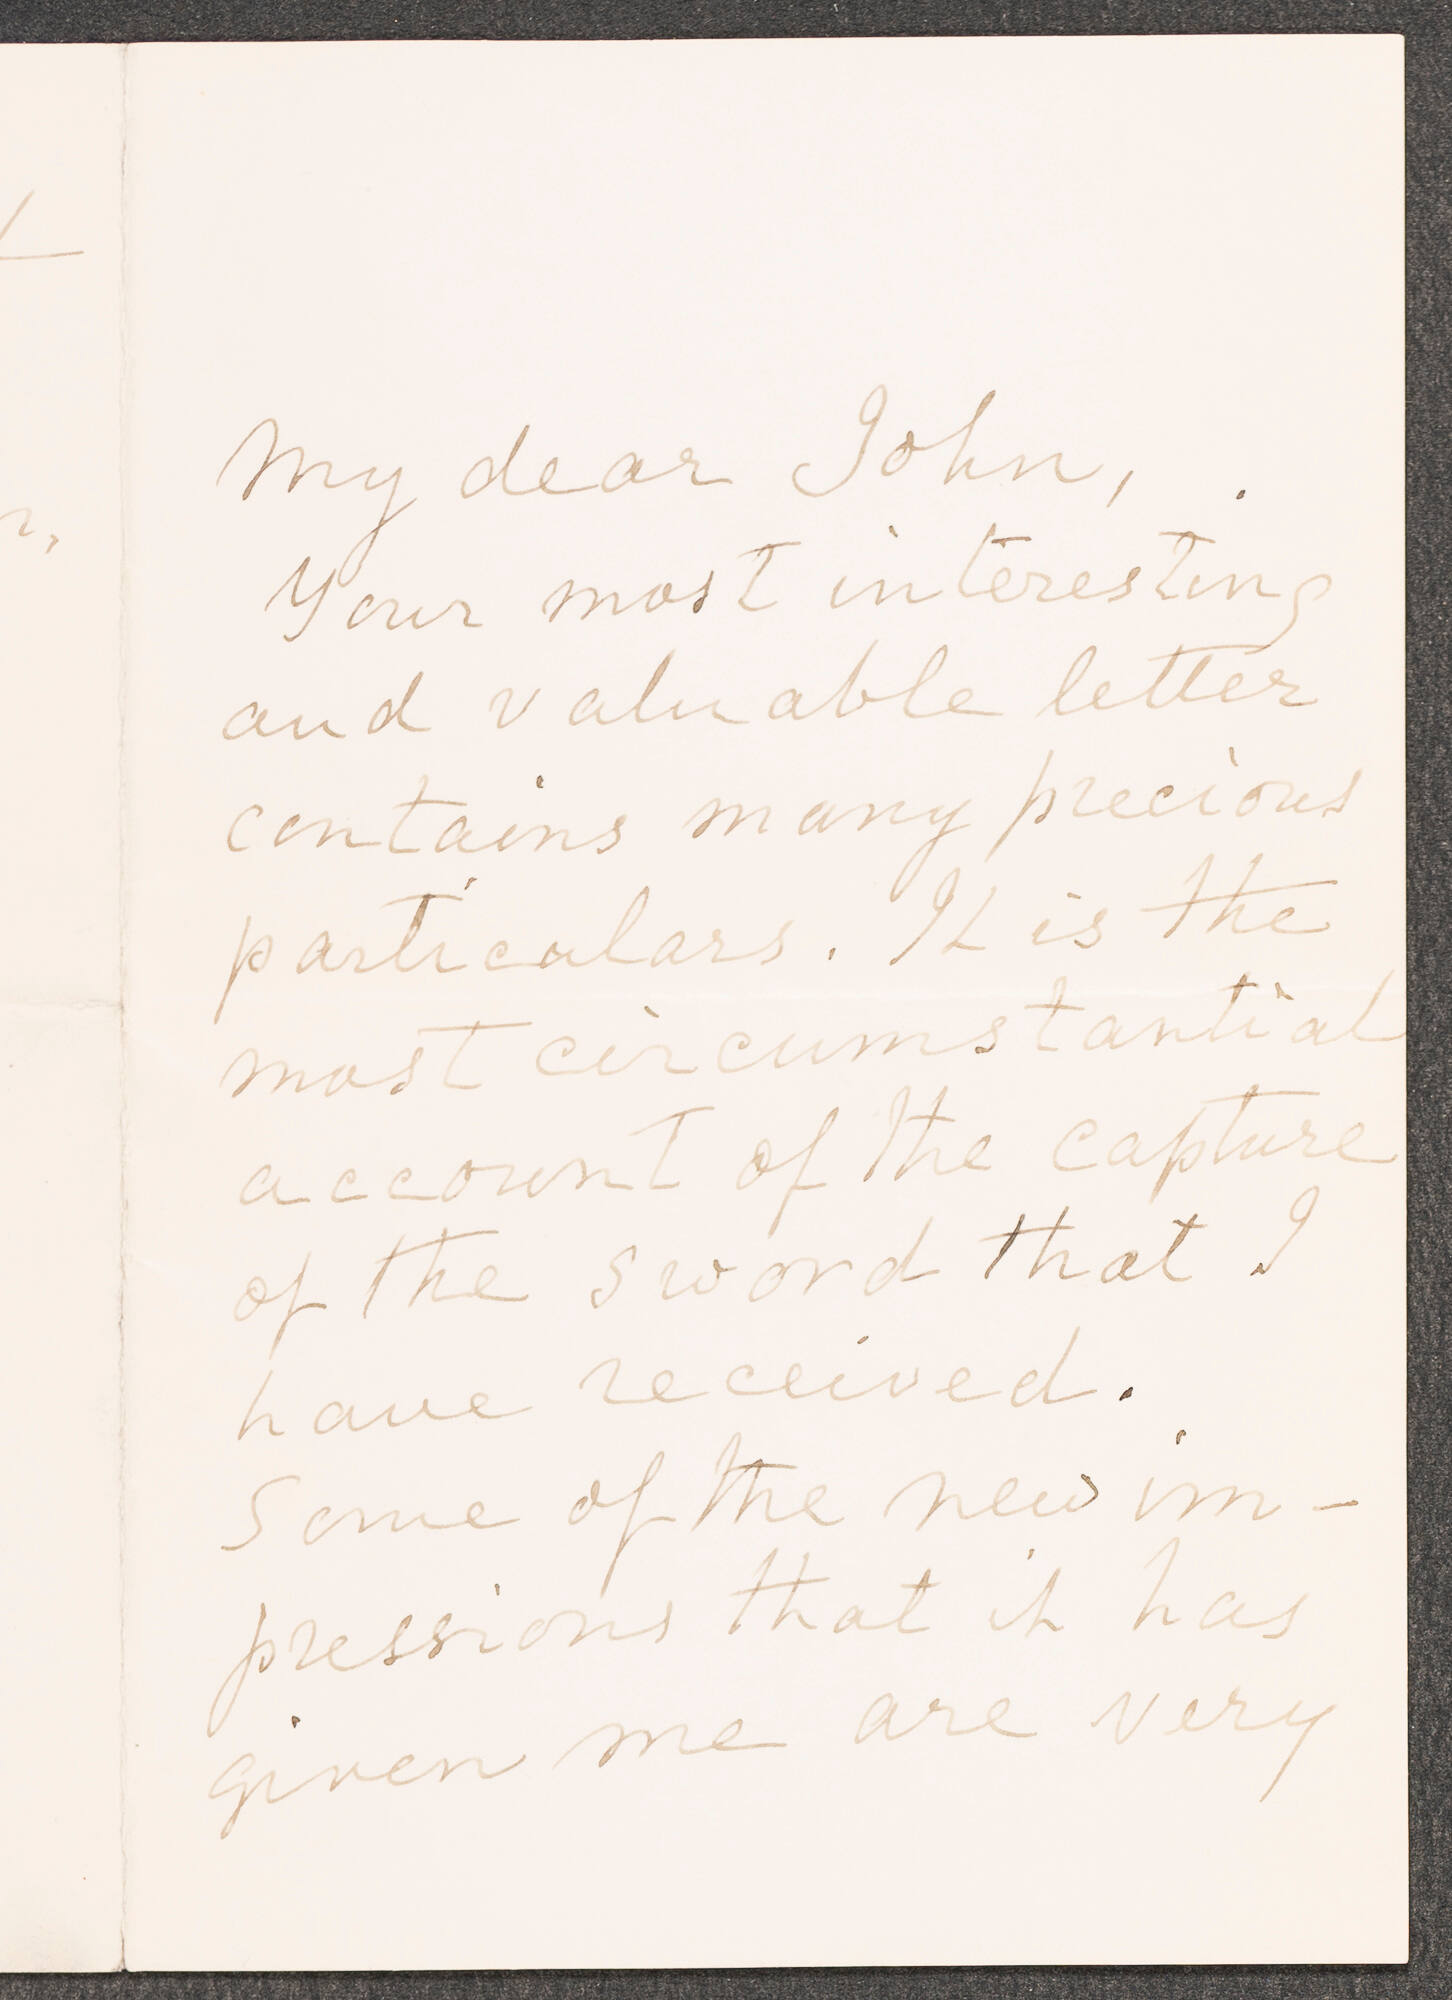 My dear John,
Your most interesting
and valuable letter
contains many precious
particulars. It is the
most circumstantial
account of the capture
of the sword that I
have received.
Some of the new im-
pressions that it has
given me are very